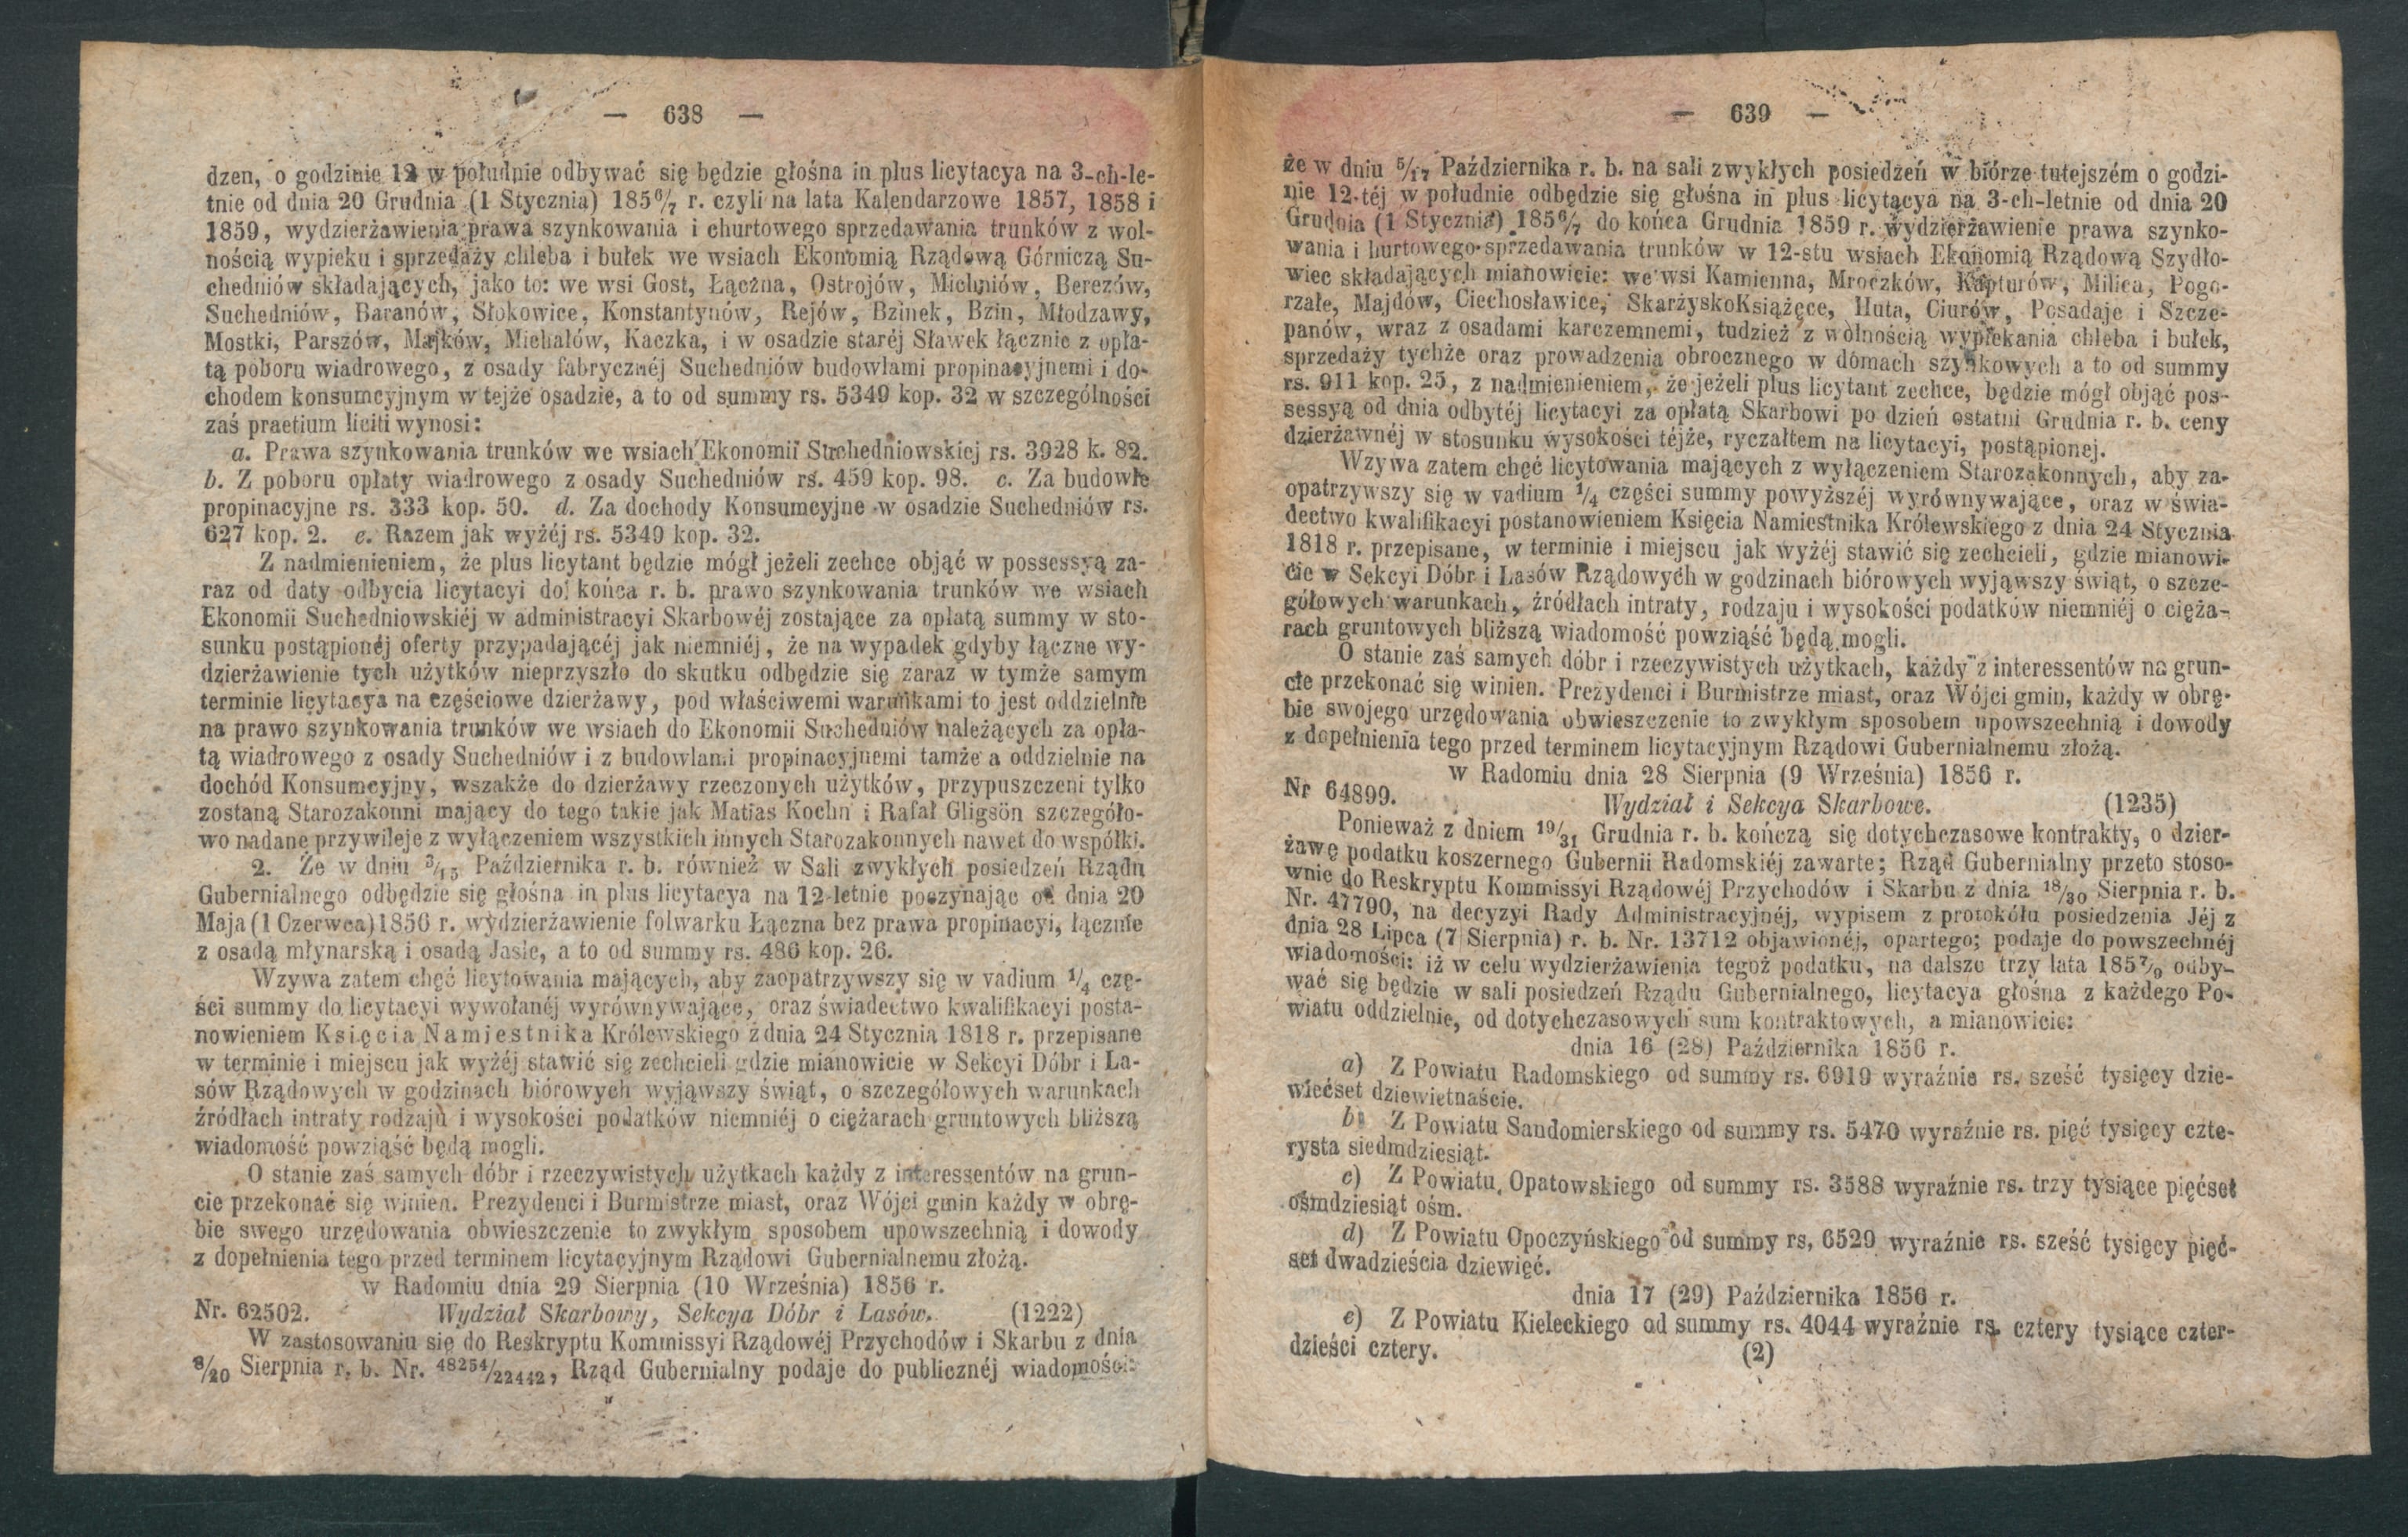 — 638 —
dzen, o godzinie 12 w południe odbywać się będzie głośna in plus licytacya na 3-ch-le-
tnie od dnia 20 Grudnia (1 Stycznia) 185⁶/₇ r. czyli na lata Kalendarzowe 1857, 1858 i
1859, wydzierżawienia prawa szynkowania i churtowego sprzedawania trunków z wol-
nością wypieku i sprzedaży chleba i bułek we wsiach Ekonomią Rządową Górniczą Su-
chedniów składających, jako to: we wsi Gost, Łączna, Ostrojów, Michniów, Berezów,
Suchedniów, Baranów, Słokowice, Konstantynów, Rejów, Bzinek, Bzin, Młodzawy,
Mostki, Parszów, Majków, Michałów, Kaczka, i w osadzie staréj Sławek łącznie z opła-
tą poboru wiadrowego, z osady fabrycznéj Suchedniów budowlami propinacyjnemi i do-
chodem konsumcyjnym w tejże osadzie, a to od summy rs. 5349 kop. 32 w szczególności
zaś praetium liciti wynosi:
a. Prawa szynkowania trunków we wsiach Ekonomii Suchedniowskiej rs. 3928 k. 82.
b. Z poboru opłaty wiadrowego z osady Suchedniów rs. 459 kop. 98. c. Za budowle
propinacyjne rs. 333 kop. 50. d. Za dochody Konsumcyjne w osadzie Suchedniów rs.
627 kop. 2. e. Razem jak wyżéj rs. 5349 kop. 32.
Z nadmienieniem, że plus licytant będzie mógł jeżeli zechce objąć w possessyą za-
raz od daty odbycia licytacyi do końca r. b. prawo szynkowania trunków we wsiach
Ekonomii Suchedniowskiéj w administracyi Skarbowéj zostające za opłatą summy w sto-
sunku postąpionéj oferty przypadającéj jak niemniéj, że na wypadek gdyby łączne wy-
dzierżawienie tych użytków nieprzyszło do skutku odbędzie się zaraz w tymże samym
terminie licytacya na częściowe dzierżawy, pod właściwemi warunkami to jest oddzielnie
na prawo szynkowania trunków we wsiach do Ekonomii Suchedniów należących za opła-
tą wiadrowego z osady Suchedniów i z budowlami propinacyjnemi tamże a oddzielnie na
dochód Konsumcyjny, wszakże do dzierżawy rzeczonych użytków, przypuszczeni tylko
zostaną Starozakonni mający do tego takie jak Matias Kochn i Rafał Gligsön szczegóło-
wo nadane przywileje z wyłączeniem wszystkich innych Starozakonnych nawet do współki.
2. Że w dniu ³/₁₅ Października r. b. również w Sali zwykłych posiedzeń Rządu
Gubernialnego odbędzie się głośna in plus licytacya na 12-letnie poczynając od dnia 20
Maja (1 Czerwca) 1856 r. wydzierżawienie folwarku Łączna bez prawa propinacyi, łącznie
z osadą młynarską i osadą Jasle, a to od summy rs. 486 kop. 26.
Wzywa zatem chęć licytowania mających, aby zaopatrzywszy się w vadium ¹/₄ czę-
ści summy do licytacyi wywołanéj wyrównywające, oraz świadectwo kwalifikacyi posta-
nowieniem Księcia Namiestnika Królewskiego z dnia 24 Stycznia 1818 r. przepisane
w terminie i miejscu jak wyżéj stawić się zechcieli gdzie mianowicie w Sekcyi Dóbr i La-
sów Rządowych w godzinach biórowych wyjąwszy świąt, o szczegółowych warunkach
źródłach intraty rodzaju i wysokości podatków niemniéj o ciężarach gruntowych bliższą
wiadomość powziąść będą mogli.
O stanie zaś samych dóbr i rzeczywistych użytkach każdy z interessentów na grun-
cie przekonać się winien. Prezydenci i Burmistrze miast, oraz Wójci gmin każdy w obrę-
bie swego urzędowania obwieszczenie to zwykłym sposobem upowszechnią i dowody
z dopełnienia tego przed terminem licytacyjnym Rządowi Gubernialnemu złożą.
w Radomiu dnia 29 Sierpnia (10 Września) 1856 r.
Nr. 62502. Wydział Skarbowy, Sekcya Dóbr i Lasów. (1222)
W zastosowaniu się do Reskryptu Kommissyi Rządowéj Przychodów i Skarbu z dnia
⁸/₂₀ Sierpnia r. b. Nr. ⁴⁸²⁵⁴/₂₂₄₄₂, Rząd Gubernialny podaje do publicznéj wiadomości:
— 639 —
że w dniu ⁵/₁₇ Października r. b. na sali zwykłych posiedzeń w biórze tutejszém o godzi-
nie 12-téj w południe odbędzie się głośna in plus licytacya na 3-ch-letnie od dnia 20
Grudnia (1 Stycznia) 185⁶/₇ do końca Grudnia 1859 r. wydzierżawienie prawa szynko-
wania i hurtowego sprzedawania trunków w 12-stu wsiach Ekonomią Rządową Szydło-
wiec składających mianowicie: we wsi Kamienna, Mroczków, Kapturów, Milica, Pogo-
rzałe, Majdów, Ciechosławice, SkarżyskoKsiążęce, Huta, Ciurów, Posadaje i Szcze-
panów, wraz z osadami karczemnemi, tudzież z wolnością wypiekania chleba i bułek,
sprzedaży tychże oraz prowadzenia obrocznego w domach szynkowych a to od summy
rs. 911 kop. 25, z nadmienieniem, że jeżeli plus licytant zechce, będzie mógł objąć pos-
sessyą od dnia odbytéj licytacyi za opłatą Skarbowi po dzień ostatni Grudnia r. b. ceny
dzierżawnéj w stosunku wysokości téjże, ryczałtem na licytacyi, postąpionej.
Wzywa zatem chęć licytowania mających z wyłączeniem Starozakonnych, aby za-
opatrzywszy się w vadium ¹/₄ części summy powyższéj wyrównywające, oraz w świa-
dectwo kwalifikacyi postanowieniem Księcia Namiestnika Królewskiego z dnia 24 Stycznia
1818 r. przepisane, w terminie i miejscu jak wyżéj stawić się zechcieli, gdzie mianowi-
cie w Sekcyi Dóbr i Lasów Rządowych w godzinach biórowych wyjąwszy świąt, o szcze-
gółowych warunkach, źródłach intraty, rodzaju i wysokości podatków niemniéj o cięża-
rach gruntowych bliższą wiadomość powziąść będą mogli.
O stanie zaś samych dóbr i rzeczywistych użytkach, każdy z interessentów na grun-
cie przekonać się winien. Prezydenci i Burmistrze miast, oraz Wójci gmin, każdy w obrę-
bie swojego urzędowania obwieszczenie to zwykłym sposobem upowszechnią i dowody
z dopełnienia tego przed terminem licytacyjnym Rządowi Gubernialnemu złożą.
w Radomiu dnia 28 Sierpnia (9 Września) 1856 r.
Nr 64899. Wydział i Sekcya Skarbowe. (1235)
Ponieważ z dniem ¹⁹/₃₁ Grudnia r. b. kończą się dotychczasowe kontrakty, o dzier-
żawę podatku koszernego Gubernii Radomskiéj zawarte; Rząd Gubernialny przeto stoso-
wnie do Reskryptu Kommissyi Rządowéj Przychodów i Skarbu z dnia ¹⁸/₃₀ Sierpnia r. b.
Nr. 47790, na decyzyi Rady Administracyjnéj, wypisem z protokółu posiedzenia Jéj z
dnia 28 Lipca (7 Sierpnia) r. b. Nr. 13712 objawionéj, opartego; podaje do powszechnéj
wiadomości: iż w celu wydzierżawienia tegoż podatku, na dalsze trzy lata 185⁷/₉ odby-
wać się będzie w sali posiedzeń Rządu Gubernialnego, licytacya głośna z każdego Po-
wiatu oddzielnie, od dotychczasowych sum kontraktowych, a mianowicie:
dnia 16 (28) Października 1856 r.
a) Z Powiatu Radomskiego od summy rs. 6919 wyraźnie rs. sześć tysięcy dzie-
więćset dziewietnaście.
b) Z Powiatu Sandomierskiego od summy rs. 5470 wyraźnie rs. pięć tysięcy czte-
rysta siedmdziesiąt.
c) Z Powiatu Opatowskiego od summy rs. 3588 wyraźnie rs. trzy tysiące pięćset
ośmdziesiąt ośm.
d) Z Powiatu Opoczyńskiego od summy rs, 6529 wyraźnie rs. sześć tysięcy pięć-
set dwadzieścia dziewięć.
dnia 17 (29) Października 1856 r.
e) Z Powiatu Kieleckiego od summy rs. 4044 wyraźnie rs. cztery tysiące czter-
dzieści cztery. (2)